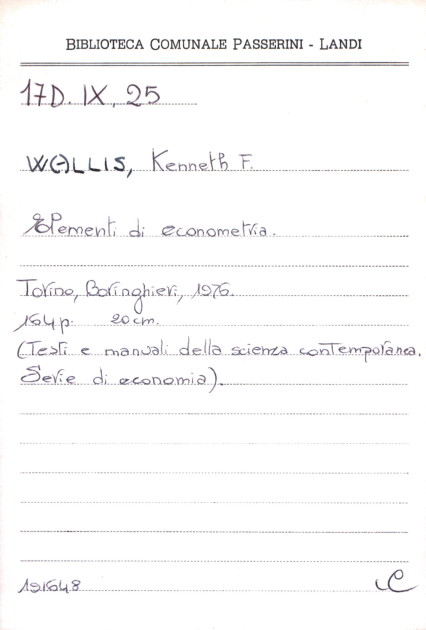 BIBLIOTECA COMUNALE PASSERINI - LANDI
17D. IX. 25
WALLIS, Kenneth F.
Elementi di econometria.
Torino, Boringhieri, 1976.
164 p. 20 cm.
(Testi e manuali della scienza contemporanea.
Serie di economia).
191648